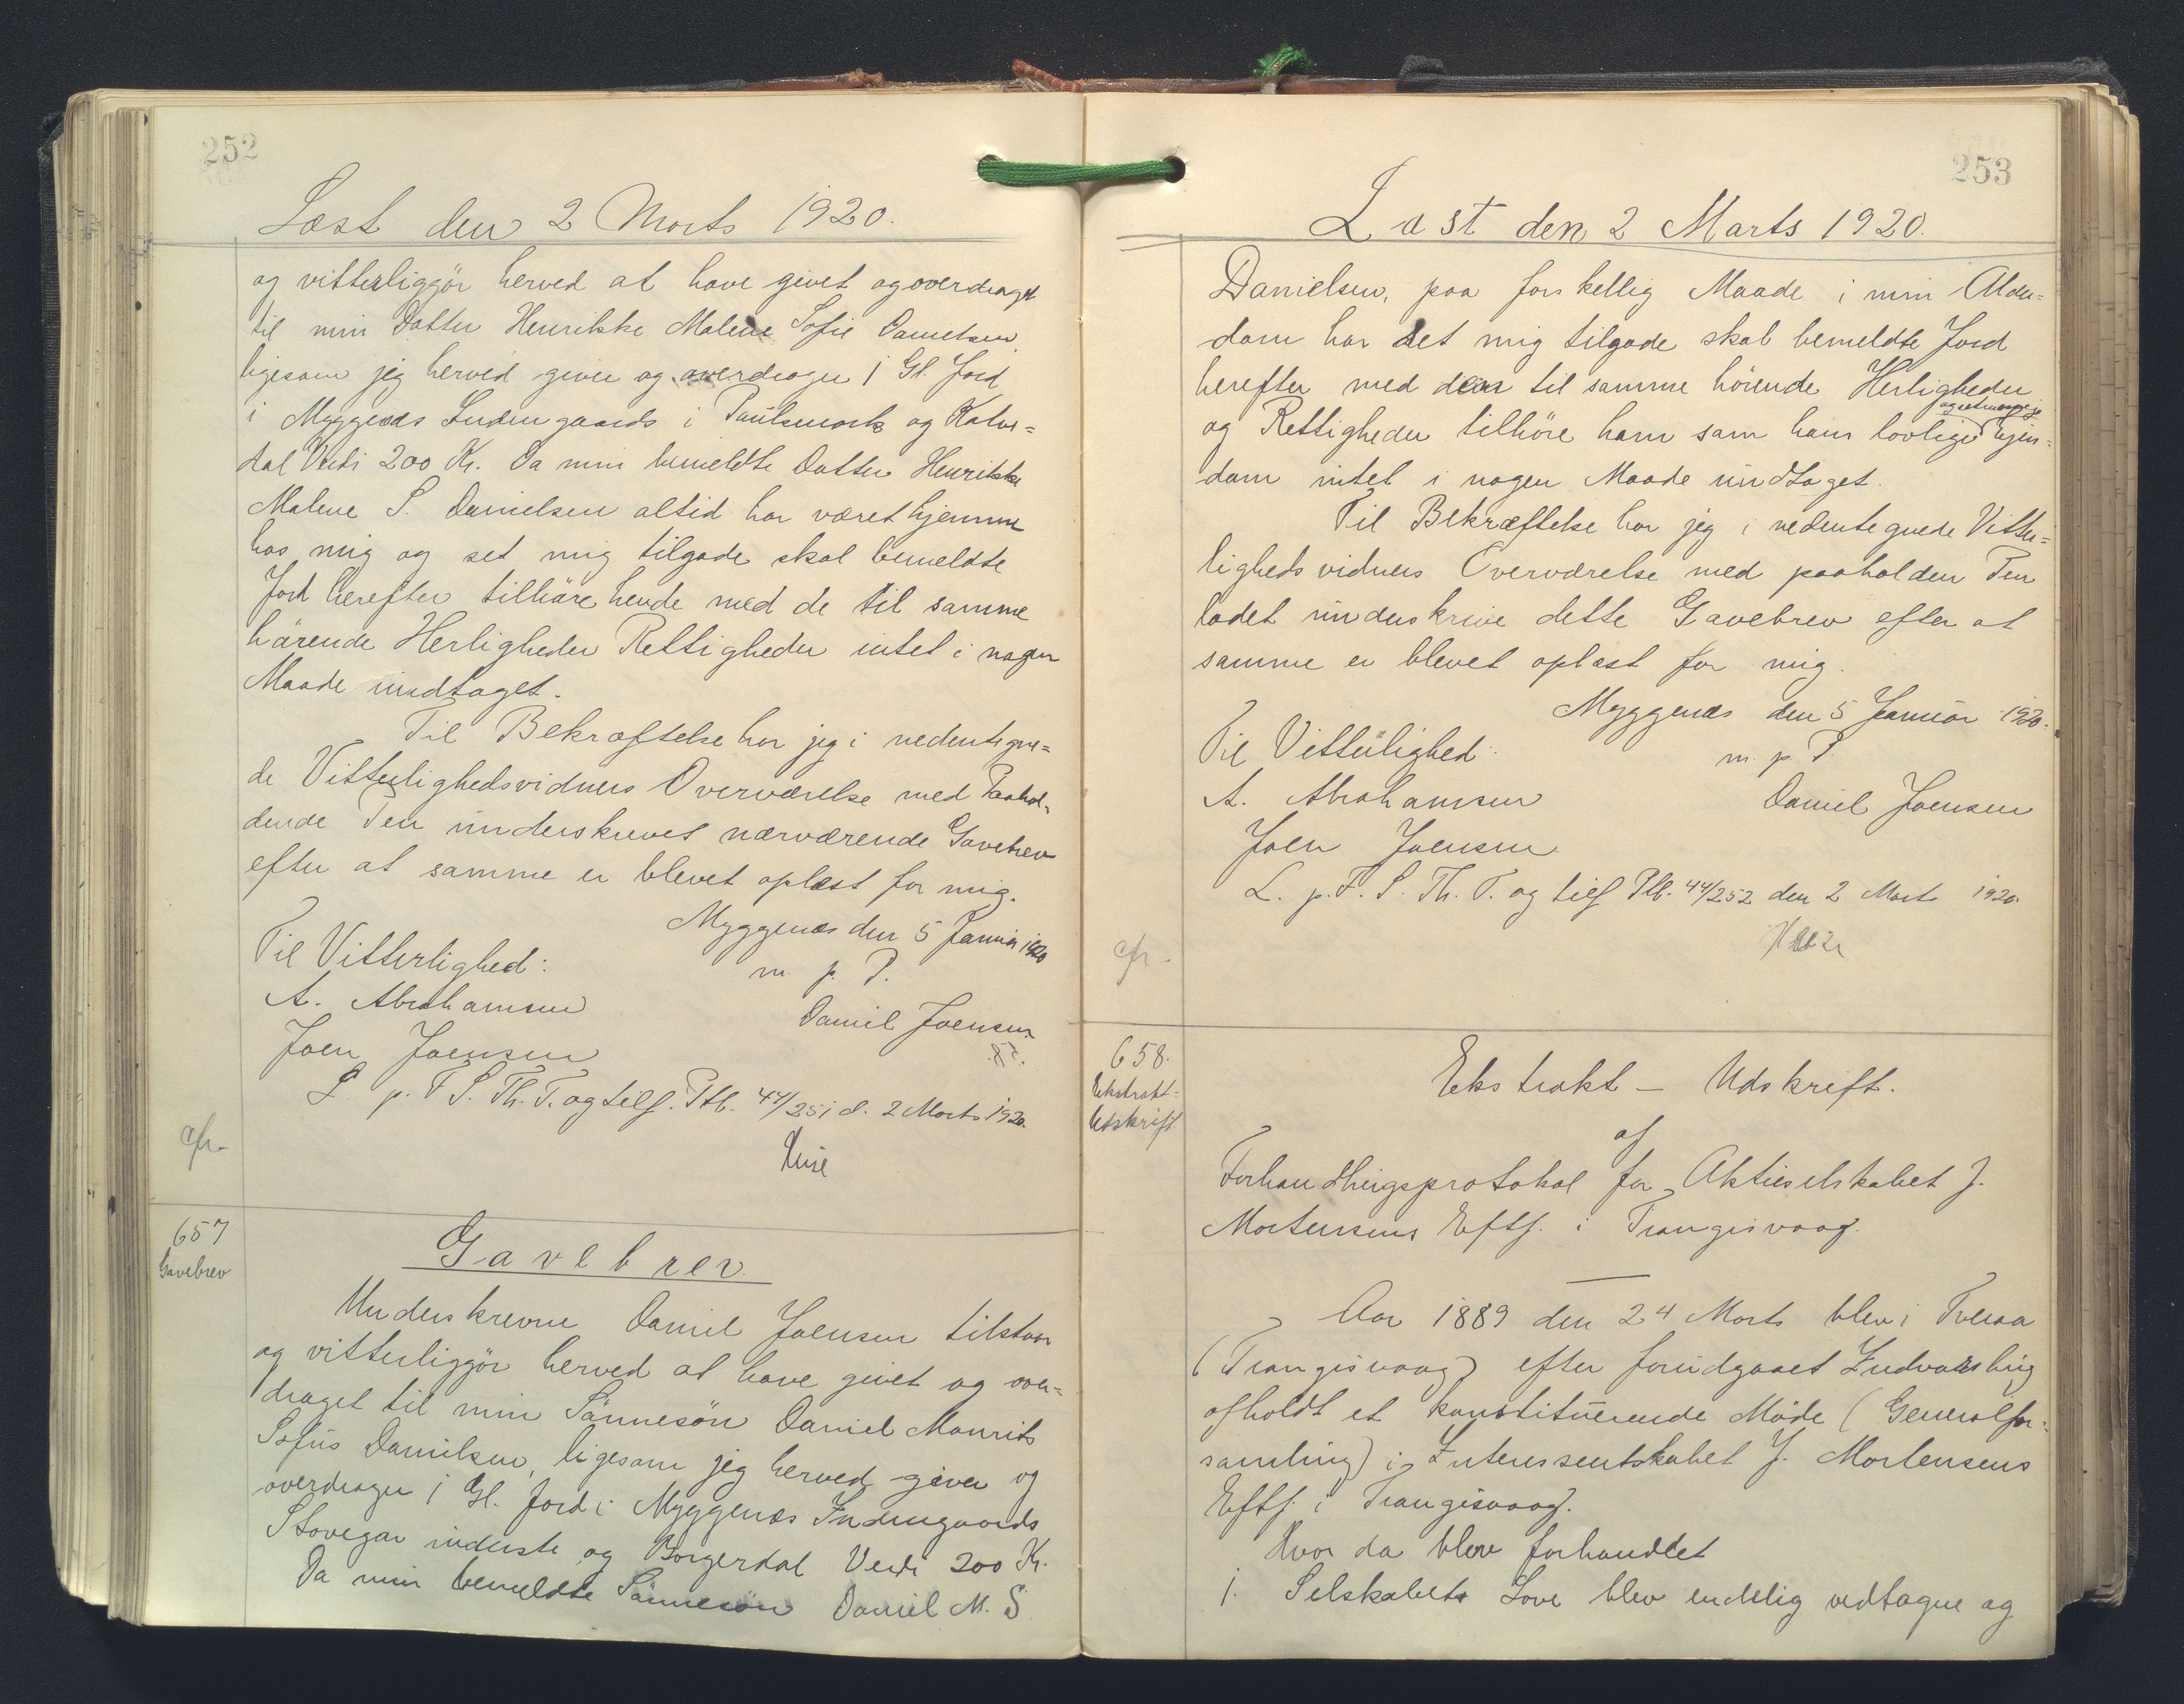 252
Læst den 2 Marts 1920.
og vitterliggör herved at have givet og overdraget
til min Datter Henrikke Malene Sofie Danielsen
ligesom jeg herved giver og overdrager 1 Gl. Jord
i Myggenæs Indengaards i Paulsmork og
dal Værdi 200 Kr. Da min bemeldte Datter Henrikke
Malene S. Danielsen altid har været hjemme
hos mig og set mig tilgode skal bemeldte
Jord herefter tilhöre hende med de til samme
hörende Herligheder Rettigheder intet i nogen
Maade undtaget.
Til Bekræftelse har jeg i nedentegne=
de Vitterlighedsvidners Overværelse med Paahol=
dende Pen underskrevet nærværende Gavebrev
efter at samme er blevet oplæst for mig.
Myggenæs den 5 Januar 1920
Til Vitterlighed:
m. p. P.
A. Abrahamsen
Daniel Joensen
Joen Joensen
L. p. F. S. Th. T. og tilf. Ptb. 44/251 d. 2 Marts 1920.
cfr.
657
Gavebrev
Gavebrev
Underskrevne Daniel Joensen tilstaar
og vitterliggör herved at have givet og over=
draget til min Sönnesön Daniel Maurits
Sofus Danielsen, ligesom jeg herved giver og
overdrager 1 Gl. Jord i Myggenæs Indengaards
Stovegar inderste og Borgerdal Værdi 200 Kr.
Da min bemeldte Sönnesön Daniel M. S.
253
Læst den 2 Marts 1920.
Danielsen, paa forskellig Maade i min Alder=
dom har set mig tilgode skal bemeldte Jord
herefter med den til samme hörende Herligheder
og Rettigheder tilhöre ham som hans lovlige og retmæssige Ejen=
dom intet i nogen Maade undtaget.
Til Bekræftelse har jeg i nedentegnede Vitter=
lighedsvidners Overværelse med paaholden Pen
ladet underskrive dette Gavebrev efter at
samme er blevet oplæst for mig.
Myggenæs den 5 Januar 1920.
Til Vitterlighed:
m. p. P.
A. Abrahamsen
Daniel Joensen
Joen Joensen
L. p. F. S. Th. T. og tilf Ptb. 44/252 den 2 Marts 1920.
cfr.
658.
Ekstrakt=
Udskrift
Ekstrakt – Udskrift.
af
Forhandlingsprotokol for Aktieselskabet J.
Mortensens Eftf. i Trangisvaag.
Aar 1889 den 24 Marts blev i Tveraa
(Trangisvaag) efter forudgaaet Indvarsling
afholdt et konstituerende Möde (Generalfor=
samling) i Interessentskabet J. Mortensens
Eftf. i Trangisvaag.
Hvor da blev forhandlet
1. Selskabets Love blev endelig vedtagne og